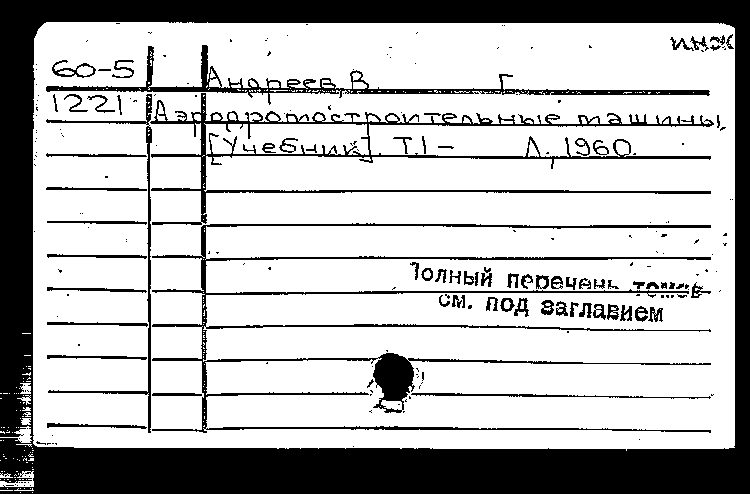 инж
60-5 Андреев, В. Г.
1221 Аэродромостроительные машины.
[Учебник]. Т.1- Л., 1960.
Полный перечень томов
см. под заглавием